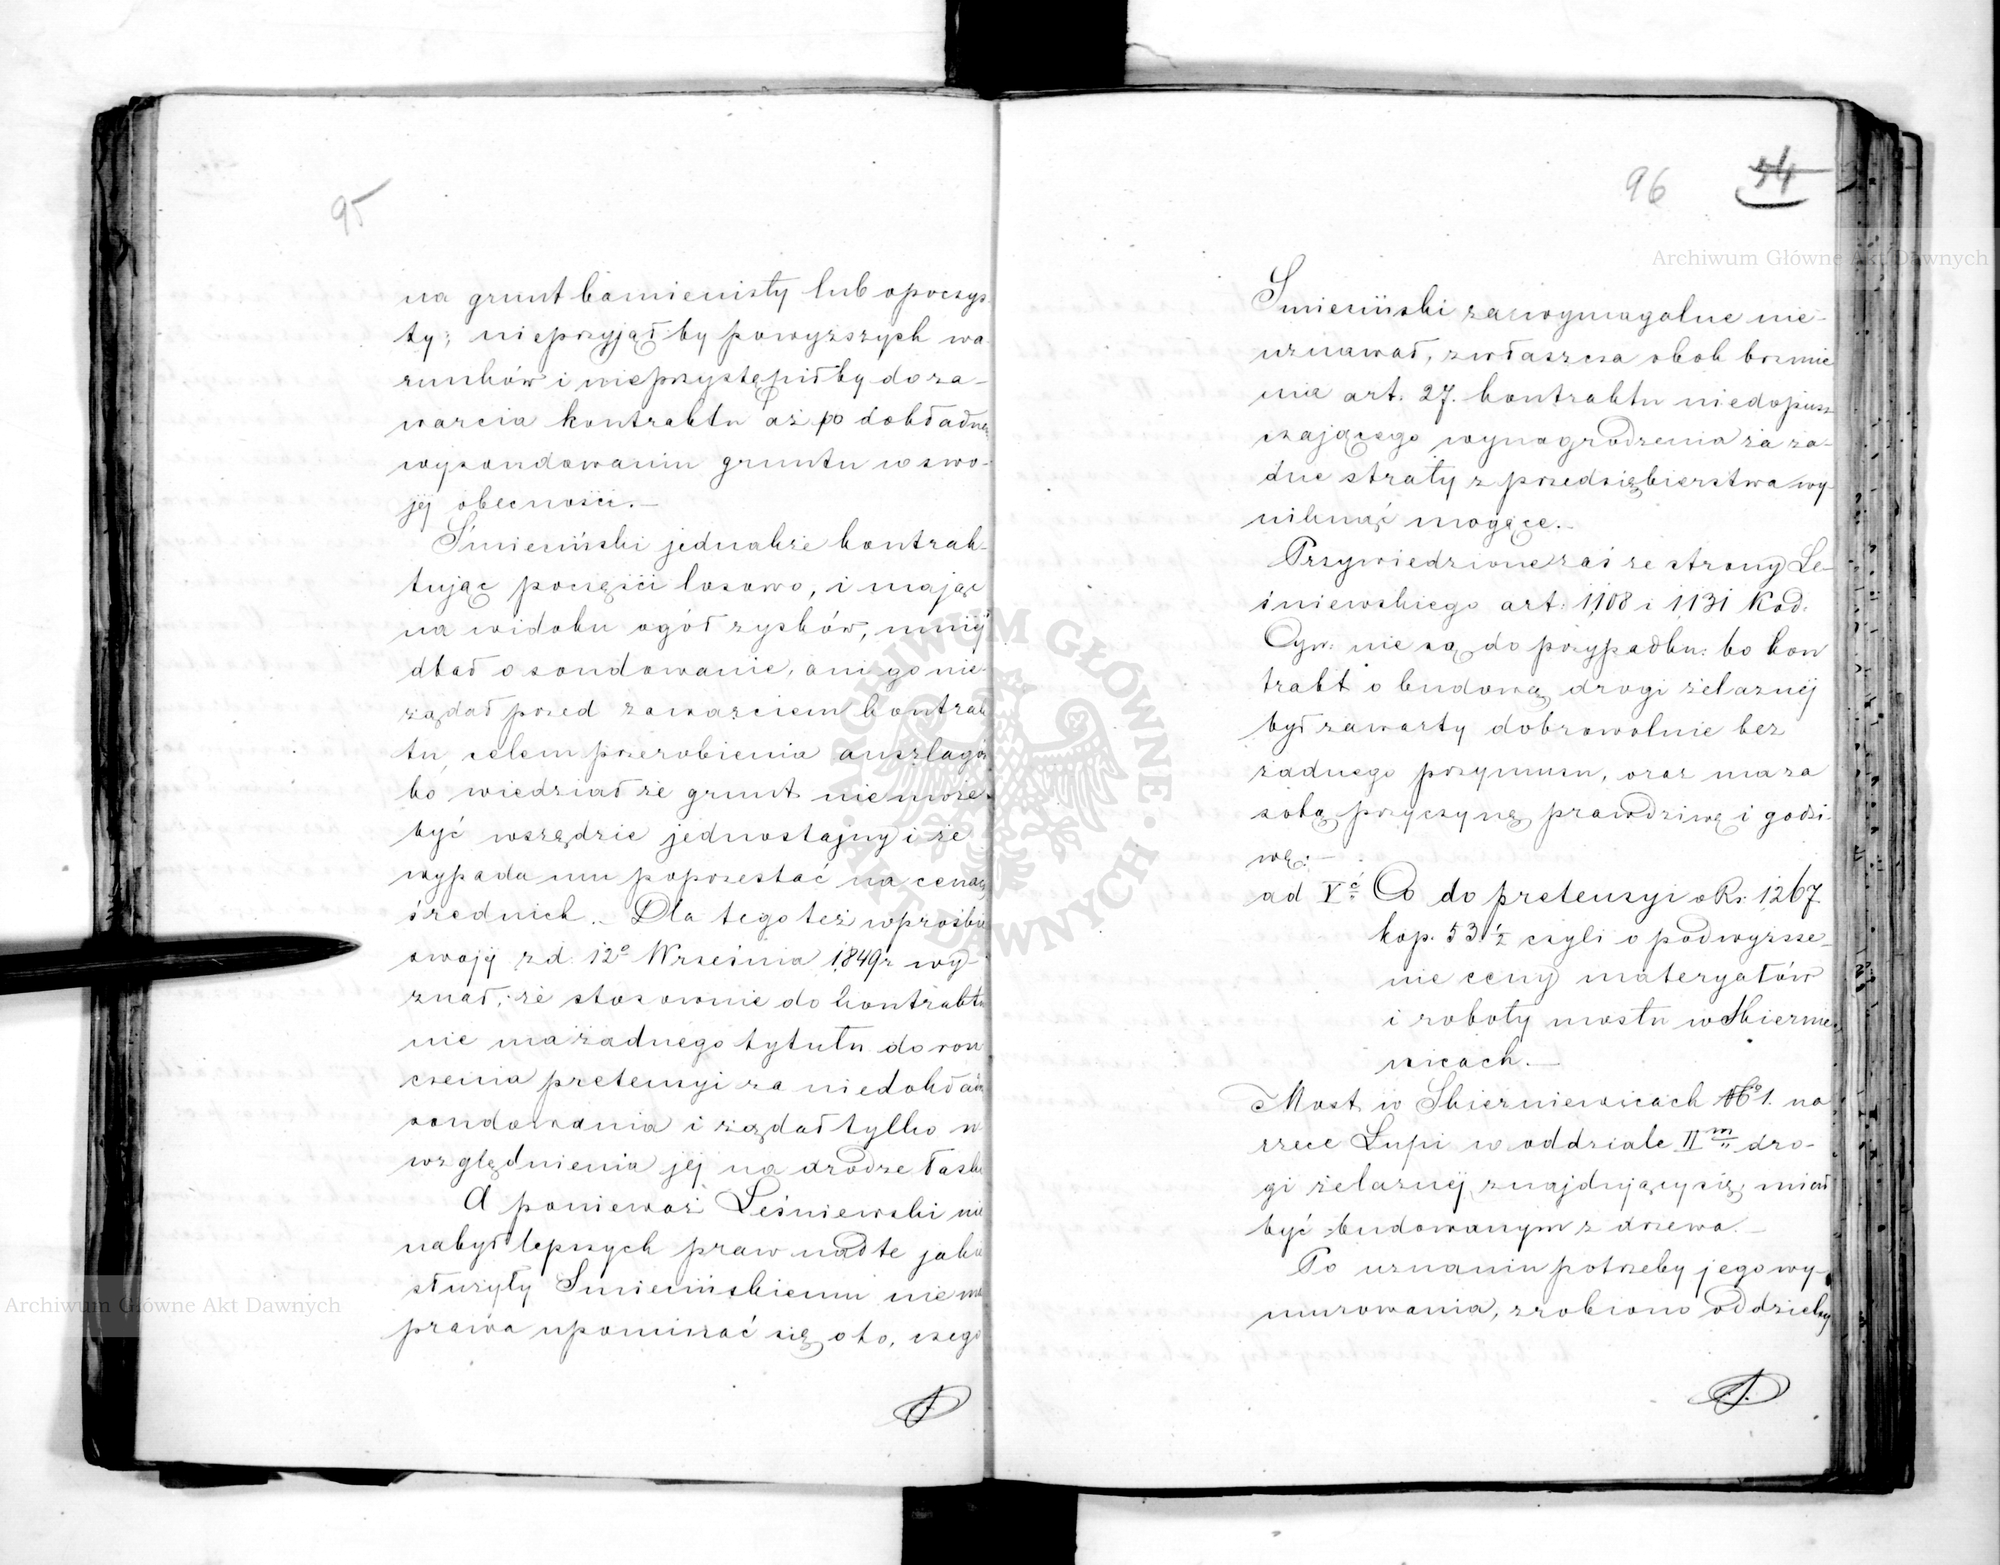 95
na grunt kamienisty lub opoczys
ty; nieprzyjął by powyższych wa
runków i nieprzystąpiłby do za-
warcia kontraktu aż po dokładne
wysondowaniu gruntu w swo-
jéj obecności.—
Śmieciński jednakże kontrak-
tując poczęści losowo, i mając
na widoku ogół zysków, mniéj
dbał o sondowanie, ani go nie
żądał przed zawarciem kontrak
tu, celem przerobienia anszlagów
bo wiedział że grunt nie może
być wszędzie jednostajny i że
wypada mu poprzestać na cenach
średnich.— Dla tego też w prośbie
swojéj z d. 12º Września 1849 r. wy-
znał, że stosownie do kontraktu
nie ma żadnego tytułu do rosz
czenia pretensyi za niedokład
sondowania i żądał tylko u
względnienia jéj na drodze łaski
A ponieważ Leśniewski nie
nabył lepszych praw nad te jakie
służyły Smiecińskiemu nie ma
prawa upominać się o to, czego
96 54
Smieciński za wymagalne nie-
uznawał, zwłaszcza obok brzmie
nia art. 27. kontraktu niedopusz
czającego wynagrodzenia za ża-
dne straty z przedsiębierstwa wy-
niknąć mogące.—
Przywiedzione zaś ze strony Le-
śniewskiego art. 1108 i 1131 Kod.
Cyw. nie są do przypadku: bo kon
trakt o budowę drogi żelaznéj
był zawarty dobrowolnie bez
żadnego przymusu, oraz ma za
sobą przyczynę prawdziwą i godzi-
wą.—
ad V. Co do pretensyi o Rs. 1267.
kop. 53 1/2 czyli o podwyższe-
nie ceny materyałów
i roboty mostu w Skiernie-
wicach.—
Most w Skierniewicach No 1. na
rzece Łupi w oddziale II m dro-
gi żelaznéj znajdujący się, miał
być budowanym z drzewa.—
Po uznaniu potrzeby jego wy-
murowania, zrobiono oddzielny
Archiwum Główne Akt Dawnych
Archiwum Główne Akt Dawnych
ARCHIWUM GŁÓWNE AKT DAWNYCH